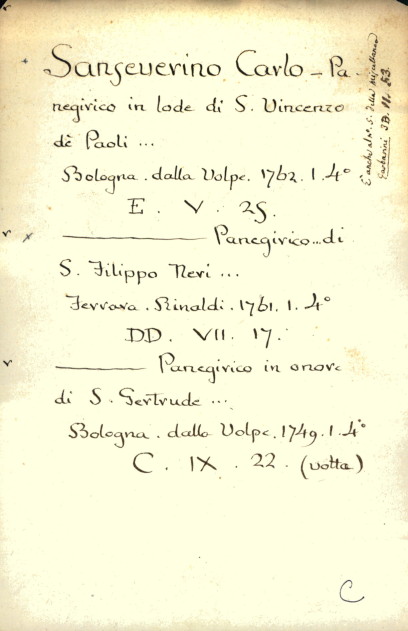 Sanseverino Carlo - Pa
negirico in lode di S. Vincenzo
dè Paoli ...
Bologna . dalla Volpe. 1762 . 1 . 4°
E . V . 25.
Panegirico ... di
S. Filippo Neri ...
Ferrara . Rinaldi . 1761. 1. 4°
DD . VII . 17.
Panegirico in onore
di S. Gertrude ...
Bologna . dalla Volpe . 1749 . 1 . 4°
C . IX . 22 . (volta)
È anche al N°. 5. della Miscellanea
3B. II. 53.
C